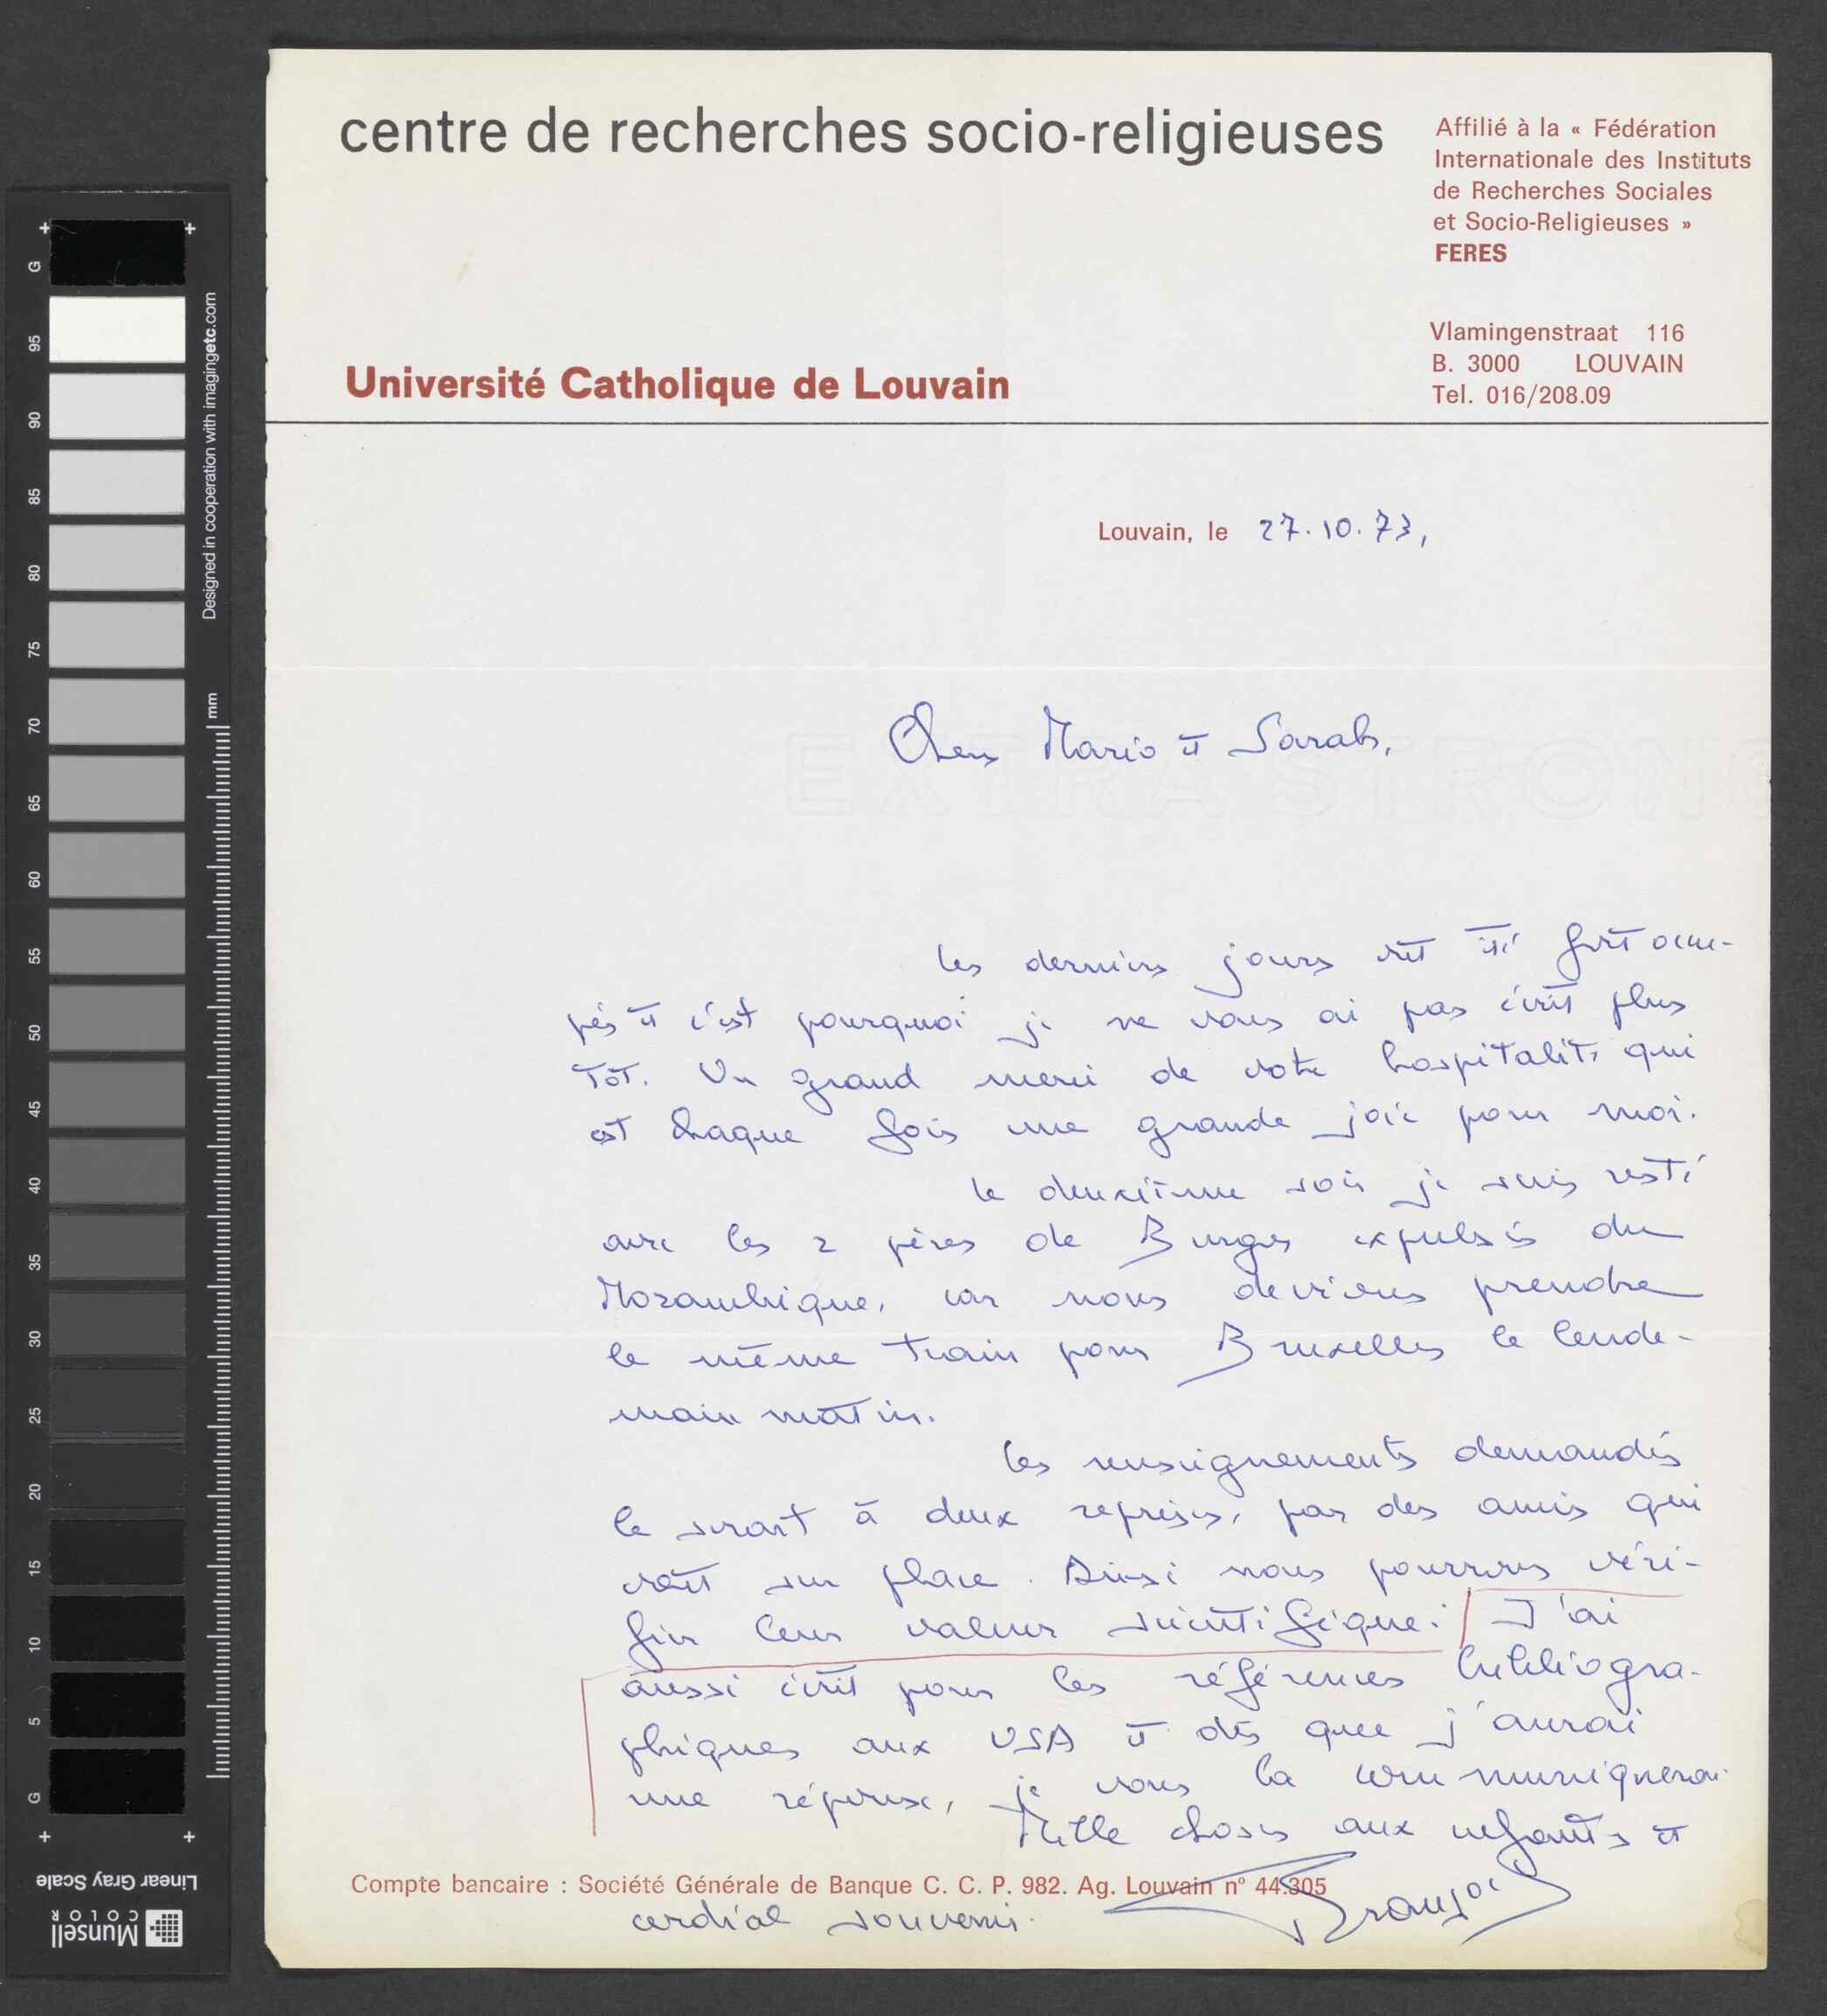 centre de recherches socio-religieuses
Affilié à la « Fédération
Internationale des Instituts
de Recherches Sociales
et Socio-Religieuses »
FERES
Vlamingenstraat 116
B. 3000 LOUVAIN
Tel. 016/208.09
Université Catholique de Louvain
Louvain, le 27.10.73,
Chers Mario et Sarah,
EXTRA STRONG
Les derniers jours ont été fort occu-
pés et c'est pourquoi je ne vous ai pas écrit plus
tôt. Un grand merci de votre hospitalité qui
est chaque fois une grande joie pour moi.
Le deuxième soir je suis resté
avec les 2 pères de Burgos expulsés du
Mozambique, car nous devions prendre
le même train pour Bruxelles le lende-
main matin.
Les renseignements demandés
le seront à deux reprises, par des amis qui
vont sur place. Ainsi nous pourrons véri-
fier leur valeur scientifique. J'ai
aussi écrit pour les références bibliogra-
phiques aux USA et dès que j'aurai
une réponse, je vous la communiquerai.
Mille choses aux enfants et
Compte bancaire : Société Générale de Banque C. C. P. 982. Ag. Louvain n° 44.305
cordial souvenir.
François
G 95 90 85 80 75 70 65 60 55 50 45 40 35 30 25 20 15 10 5 G
Designed in cooperation with imagingetc.com
mm
Linear Gray Scale
Munsell
COLOR